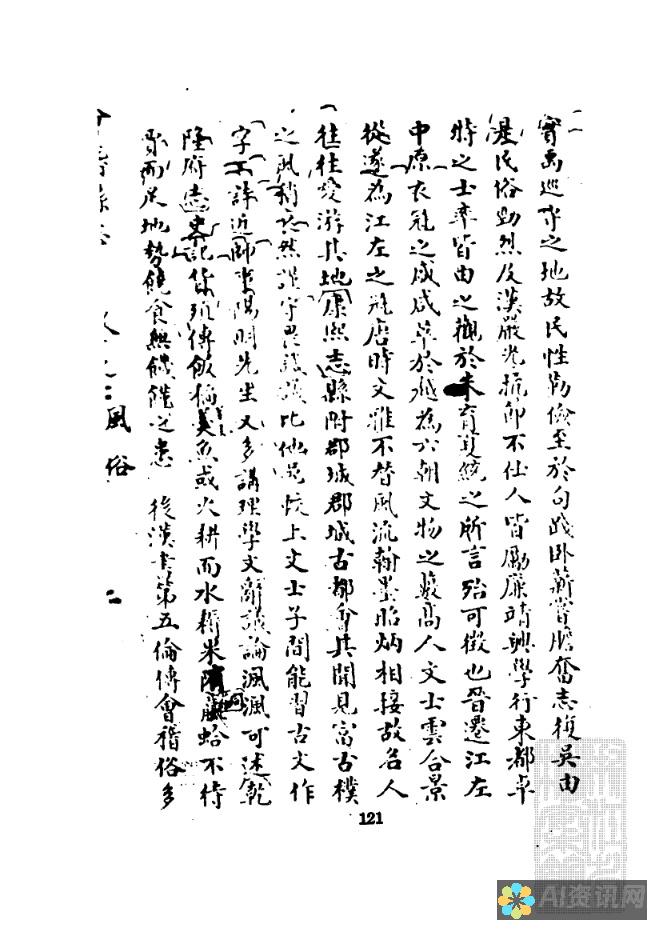 實禹巡守之地故民性勤儉至於句踐卧薪嘗膽奮志復吳由
是民俗勁然及漢嚴光抗節不仕人皆勵廉靖興學行東都卓
時之士率皆由之觀於朱育夏統之所言殆可徵也晉遷江左
中原衣冠之咸萃於越為六朝文物之藪高人文士雲合景
從遂為江左之冠唐時文雅不替風流翰墨昭炳相接故名人
往往愛游其地康熙志縣附郡城郡城古都會其聞見富古樸
之風稍衰然謹守畏議比他邑上文士子間能習古文作
字不詳近師王陽明先生又多講理學文辭議論渢渢可述乾
隆府志史記貨殖傳飯稻羹魚或火耕而水耨果隋蠃蛤不待
賈而足地勢饒食無饑饉之患 後漢書第五倫傳會稽俗多
風俗
二
121
AI资讯网